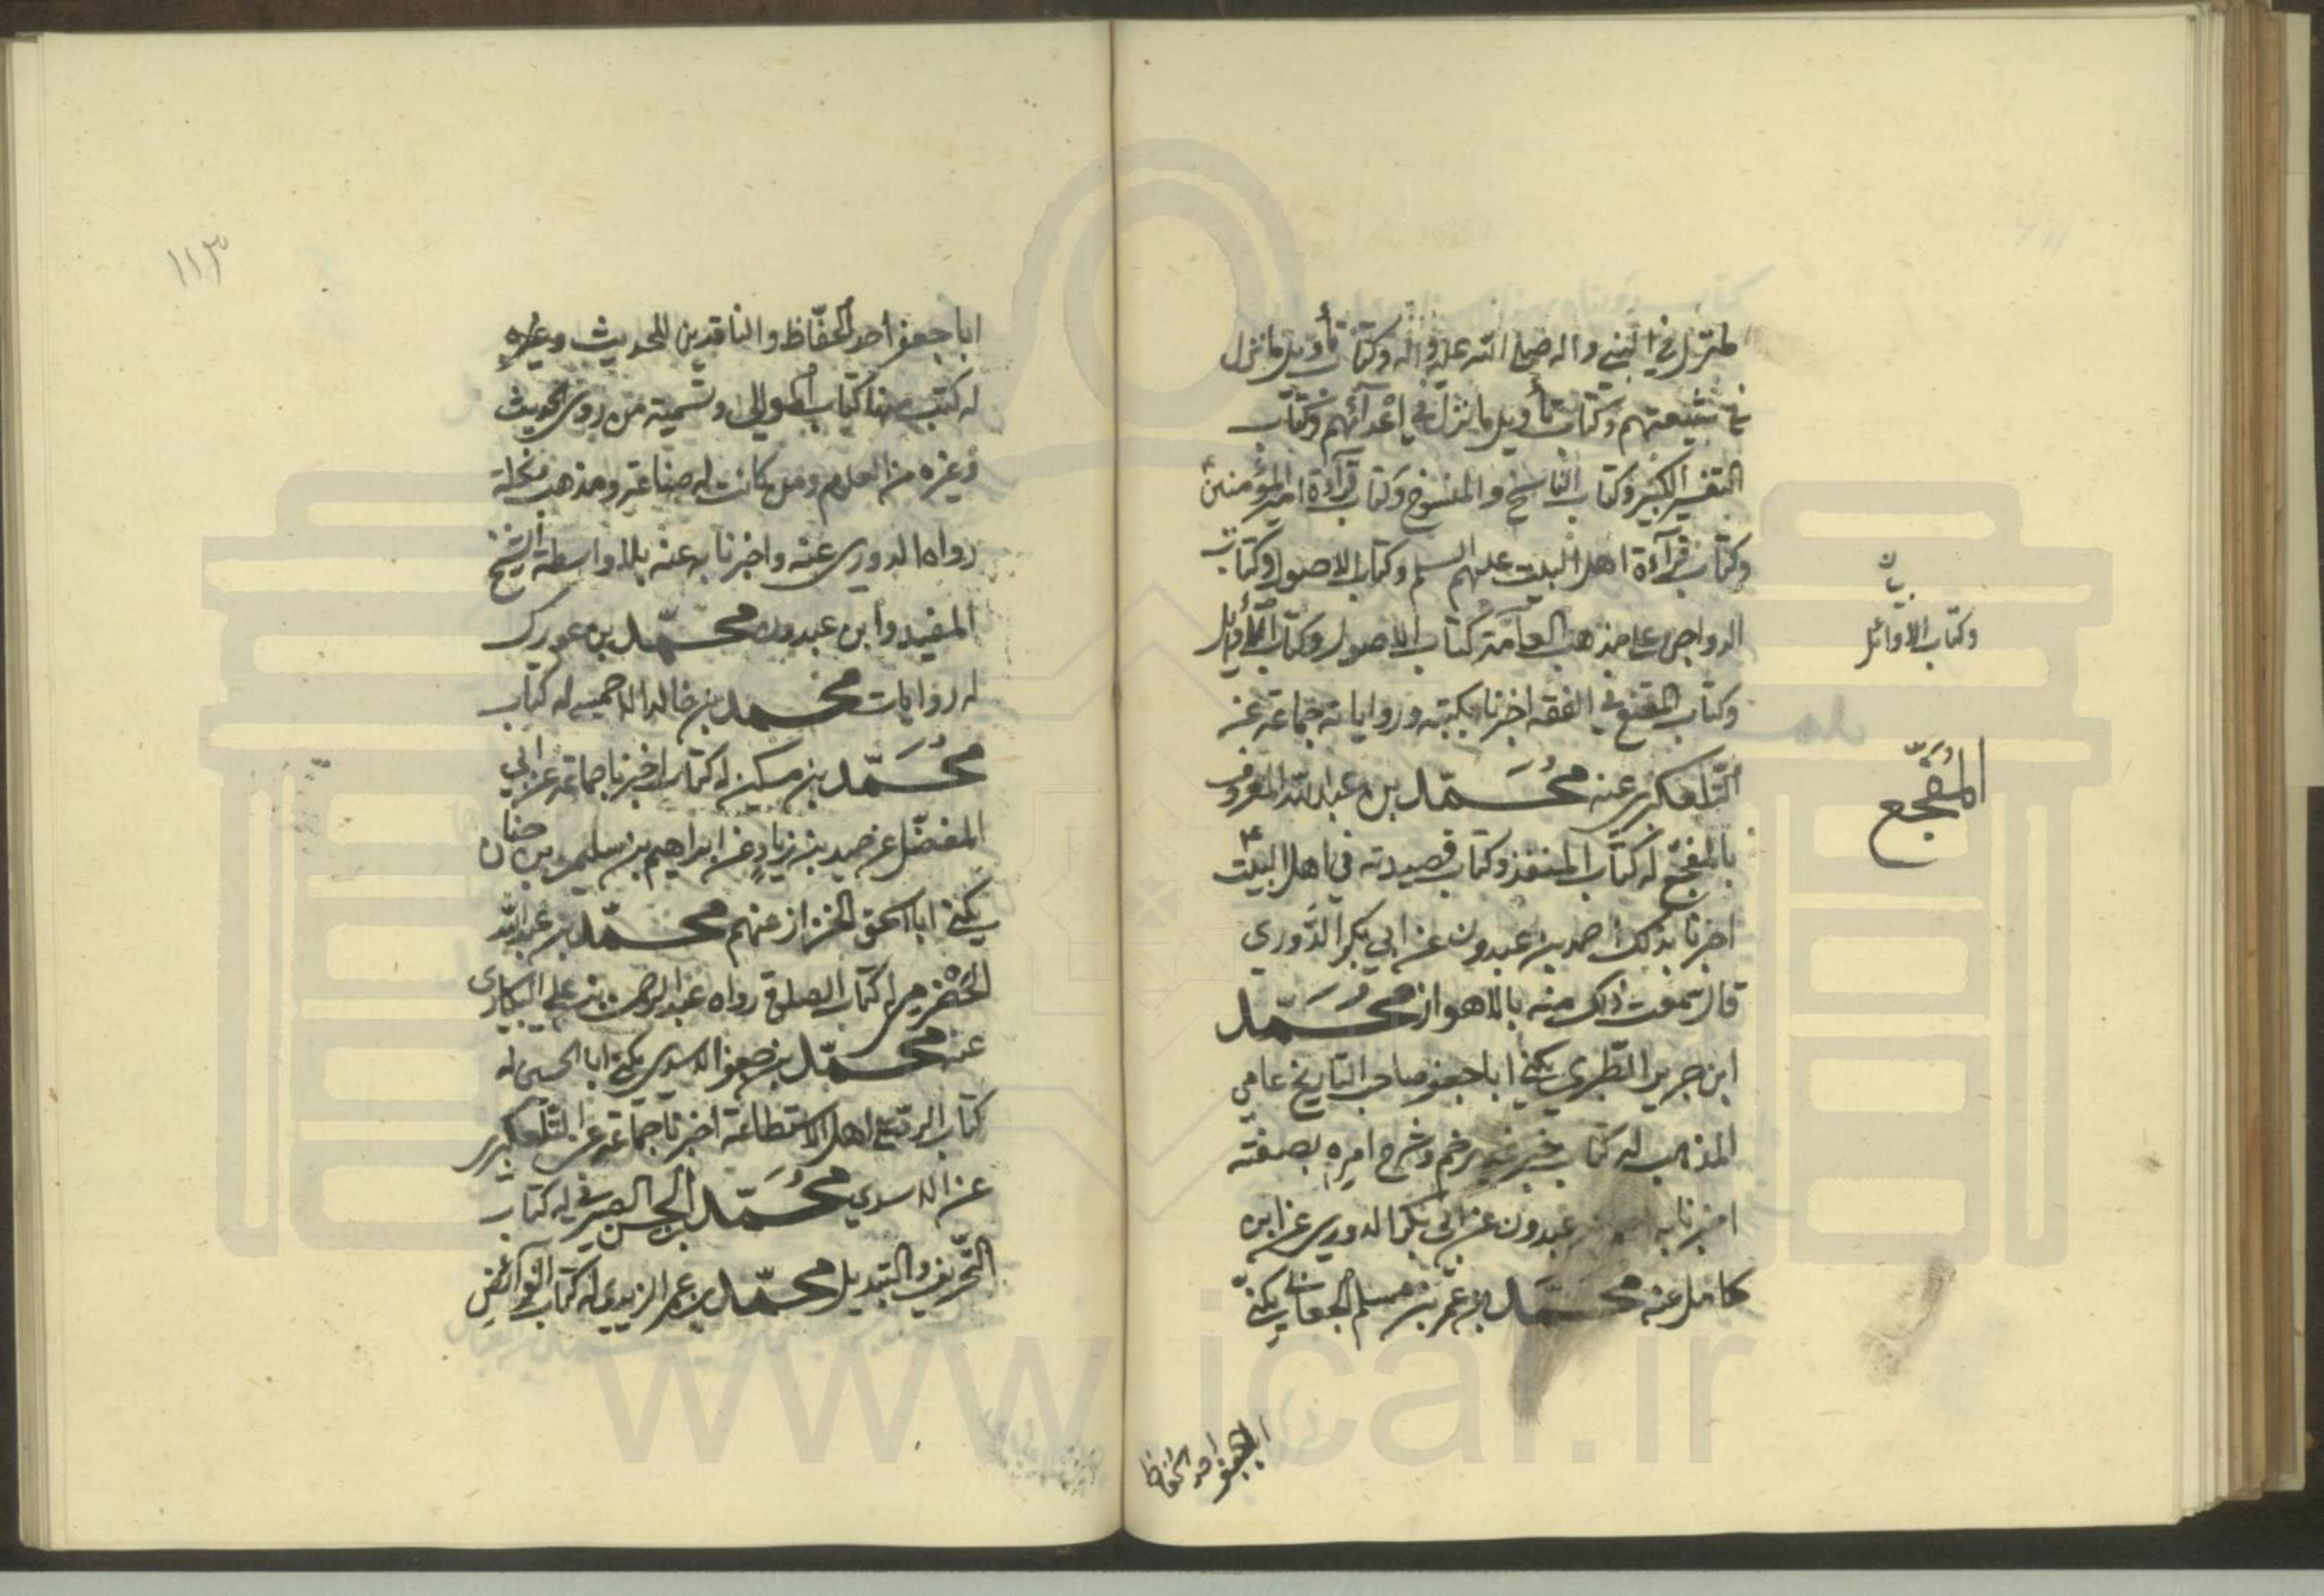 المنزل في النبي واله صلى الله عليه واله وكتاب تأويل ما نزل
في شيعتهم وكتاب تأويل ما نزل في اعدآئهم وكتاب
التفسير الكبير وكتاب الناسخ والمنسوخ وكتاب قرآءة امير المؤمنين
وكتاب قرآءة اهل البيت عليهم السلم وكتاب الاصول وكتاب
الدواجن على مذهب العامة كتاب الاصول وكتاب الأوايل
وكتاب المقنع في الفقه اخبرنا بكتبه ورواياته جماعة عن
التلعكبري عنه محمد بن عبد الله المعروف
بالمفجع له كتاب المنقذ وكتاب قصيدته في اهل البيت
اخبرنا بذلك احمد بن عبدون عن ابي بكر الدوري
قال سمعت ذلك منه بالاهواز محمد
ابن جرير الطبري يكنى ابا جعفر صاحب التاريخ عامي
المذهب له كتاب خبر غدير خم وشرح امره بصفته
اخبرنا به عبدون عن ابي بكر الدوري عن ابن
كامل عنه محمد بن عمر بن مسلم الجعابي يكنى
ابا جعفر احد الحفاظ
ن
وكتاب الاوائل
المفجع
١١٣
ابا جعفر احد الحفاظ والناقدين للحديث وغيره
له كتب منها كتاب الموالي وتسمية من روى الحديث
وغيره من العلوم ومن كانت له صناعة ومذهب ونحلة
رواه الدوري عنه واخبرنا به عنه بلا واسطة الشيخ
المفيد وابن عبدون محمد بن عورك
له روايات محمد بن خالد الاحمسي له كتاب
محمد بن مسكين له كتاب اخبرنا جماعة عن ابي
المفضل عن حميد بن زياد عن ابراهيم بن سليمن بن حنان
يكنى ابا اسحق الخزاز عنهم محمد بن عبد الله
الحضرمي له كتاب الصلوة رواه عبد الرحمن بن علي البكاري
عنه محمد بن جعفر الاسدي يكنى ابا الحسين له
كتاب الرد على اهل الاستطاعة اخبرنا جماعة عن التلعكبري
عن الاسدي محمد بن الحسن الصيرفي له كتاب
التحريف والتبديل محمد بن عمر الزيدي له كتاب الفرائض